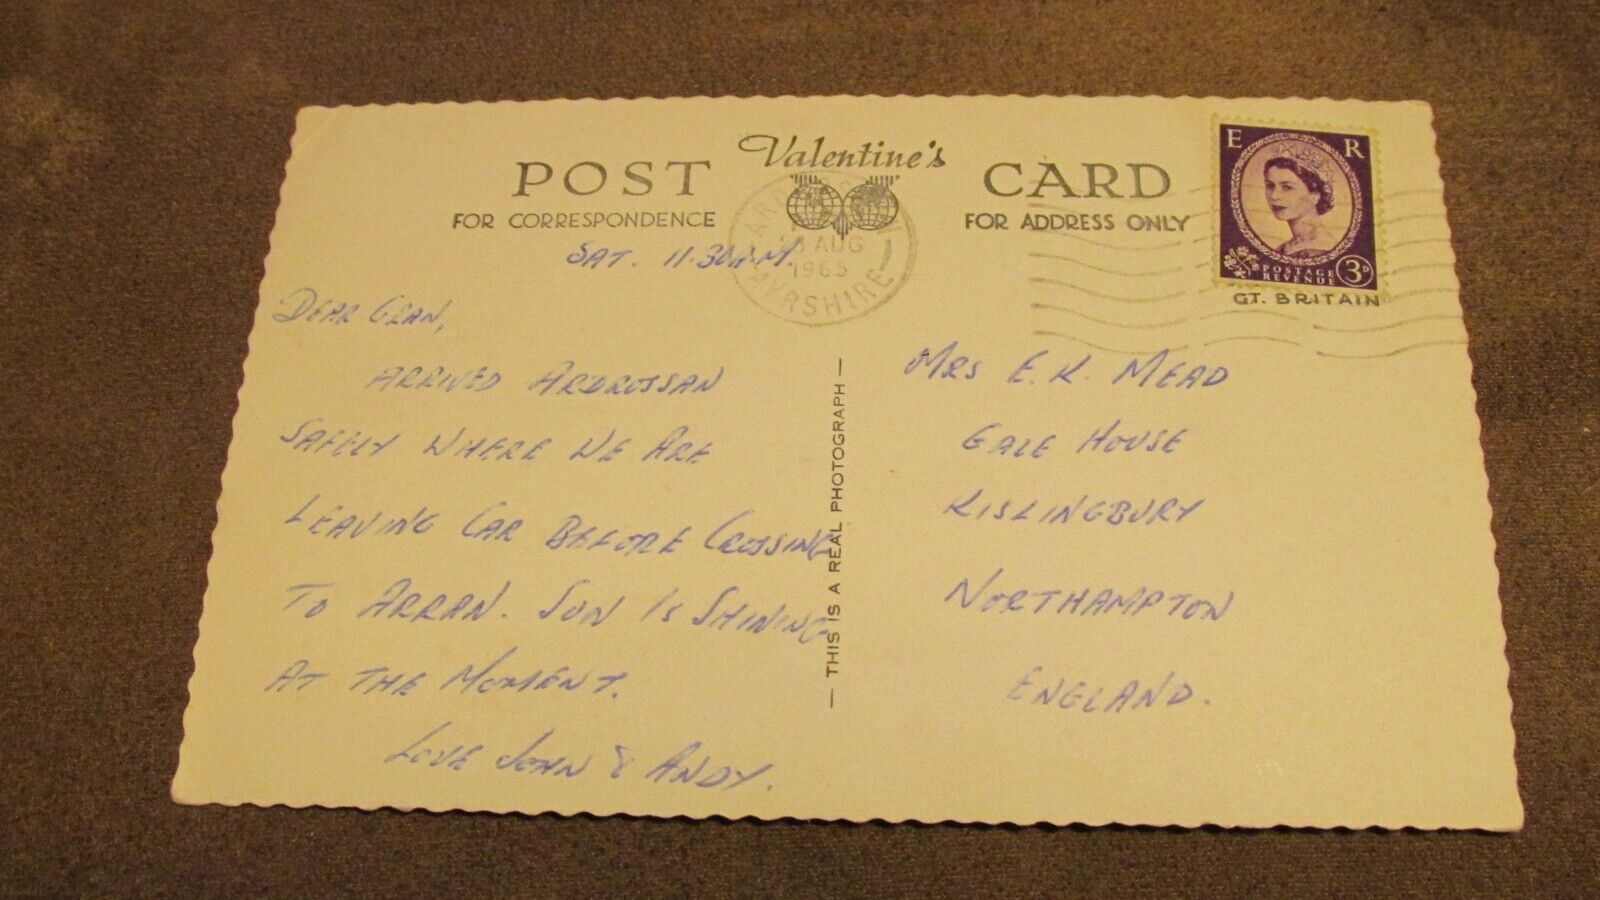 Valentine's
POST CARD
FOR CORRESPONDENCE
FOR ADDRESS ONLY
E R
POSTAGE
REVENUE
3D
GT. BRITAIN
AUG
1965
AYRSHIRE
SAT. 11.30A.M.
DEAR GRAN,
ARRIVED ARDROSSAN
SAFELY WHERE WE ARE
LEAVING CAR BEFORE CROSSING
TO ARRAN. SUN IS SHINING
AT THE MOMENT.
LOVE JOHN & ANDY.
— THIS IS A REAL PHOTOGRAPH —
MRS E. K. MEAD
GALE HOUSE
KISLINGBURY
NORTHAMPTON
ENGLAND.